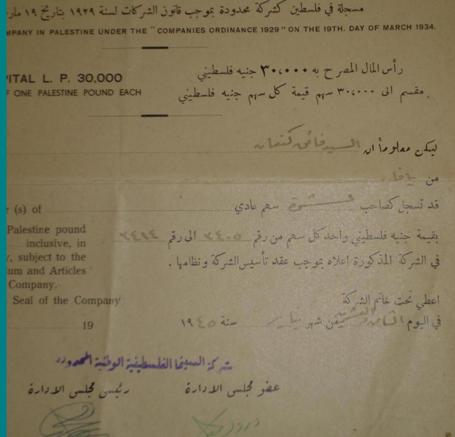 مسجلة في فلسطين كشركة محدودة بموجب قانون الشركات لسنة ١٩٢٩ بتاريخ ١٩ مار
MPANY IN PALESTINE UNDER THE "COMPANIES ORDINANCE 1929" ON THE 19TH. DAY OF MARCH 1934.
رأس المال المصرح به ٣٠،٠٠٠ جنيه فلسطيني
PITAL L. P. 30,000
مقسم الى ٣٠،٠٠٠ سهم قيمة كل سهم جنيه فلسطيني
F ONE PALESTINE POUND EACH
ليكن معلوماً ان السيد فائق كنعان
من يافا
قد تسجل كصاحب عشرة سهم عادي
r (s) of
بقيمة جنيه فلسطيني واحد كل سهم من رقم ٣٤٠٥ الى رقم ٣٤١٤
Palestine pound
inclusive, in
في الشركة المذكورة اعلاه بموجب عقد تأسيس الشركة ونظامها .
y, subject to the
um and Articles
Company.
اعطي تحت خاتم الشركة
Seal of the Company
في اليوم الثامن والعشرين من شهر يناير سنة ١٩٤٥
19
شركة السينما الفلسطينية الوطنية المحدودة
عضو مجلس الادارة
رئيس مجلس الادارة